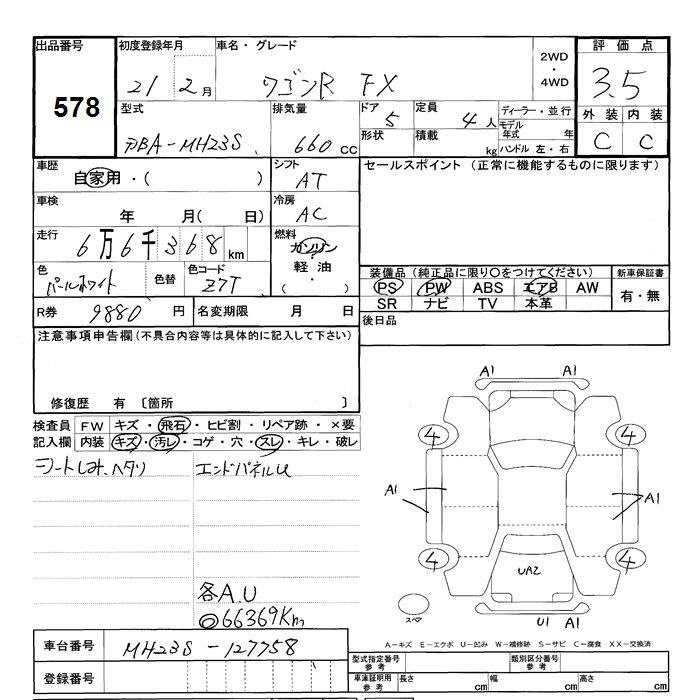 出品番号 578
初度登録年月 21 2月
車名・グレード ワゴンR FX
2WD
・
4WD
評価点 3.5
外装 内装
C C
型式 DBA-MH23S
排気量 660 cc
ドア 5
形状
定員 4人
積載 kg
ディーラー・並行
モデル年式 年
ハンドル 左・右
車歴 自家用・( )
シフト AT
車検 年 月( 日)
冷房 AC
走行 6万6千368km
燃料 ガソリン・軽油・( )
色 パールホワイト
色替
色コード Z7T
R券 9880円
名変期限 月 日
セールスポイント (正常に機能するものに限ります)
装備品 (純正品に限り〇をつけてください)
PS PW ABS エアB AW
SR ナビ TV 本革
新車保証書
有・無
後日品
注意事項申告欄(不具合内容等は具体的に記入して下さい)
修復歴 有 〔箇所 〕
検査員記入欄
FW キズ・飛石・ヒビ割・リペア跡・×要
内装 キズ・汚レ・コゲ・穴・スレ・キレ・破レ
シートしみ、ヘタリ
エンドパネルU
各A.U
◎66369Km
A1 A1
4 4
A1 A1
4 4
UA2
スペア
U1 A1
A-キズ E-エクボ U-凹み W-補修跡 S-サビ C-腐食 XX-交換済
車台番号 MH23S-127758
登録番号
型式指定番号 参考
類別区分番号 参考
車庫証明用 参考
長さ cm
幅 cm
高さ cm